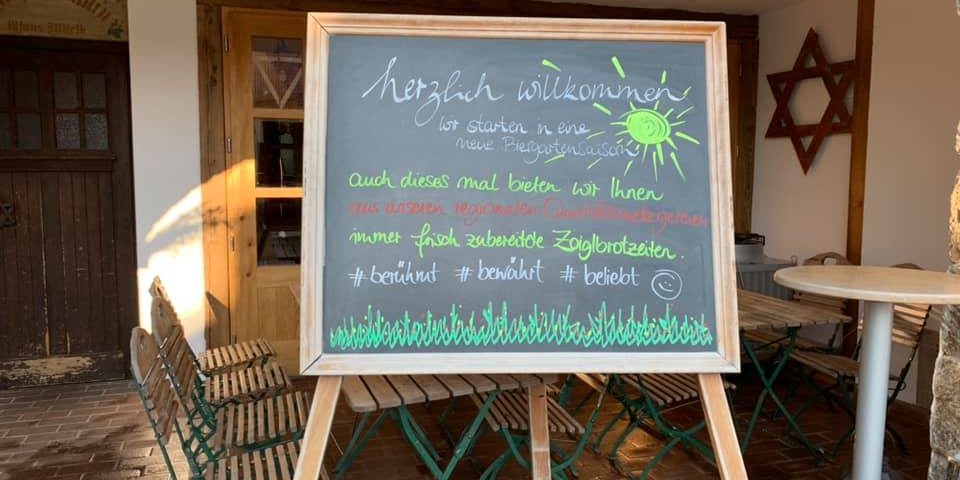 herzlich willkommen
wir starten in eine
neue Biergartensaison
auch dieses mal bieten wir Ihnen
aus unseren regionalen Qualitätsmetzgereien
immer frisch zubereitete Zoiglbrotzeiten.
#berühmt #bewährt #beliebt